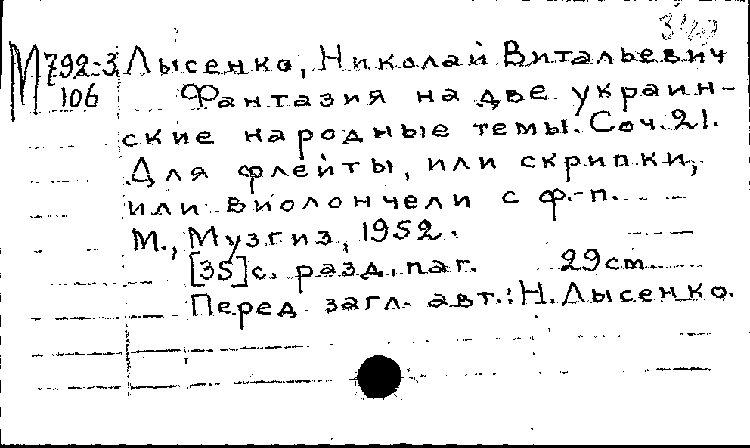 М 792:3 Лысенко, Николай Витальевич
106 Фантазия на две украин-
ские народные темы. Соч. 21.
Для флейты, или скрипки,
или виолончели с ф.-п.
М., Музгиз, 1952.
[35]с. разд. паг. 29 cm.
Перед загл. авт.: Н. Лысенко.